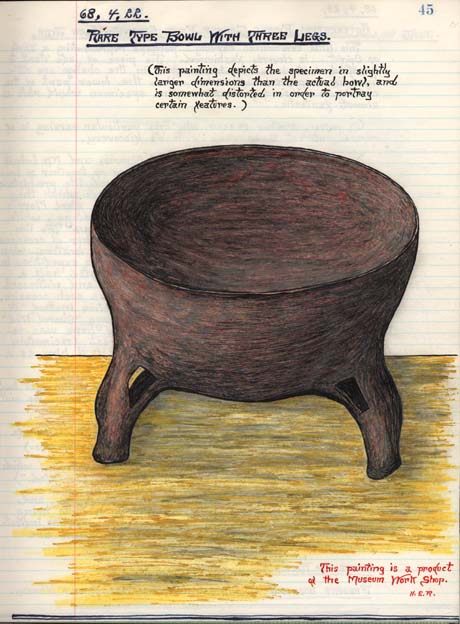 68, 4, 22.
45
RARE TYPE BOWL WITH THREE LEGS.
(This painting depicts the specimen in slightly
larger dimensions than the actual bowl, and
is somewhat distorted in order to portray
certain features.)
This painting is a product
of the Museum Work Shop.